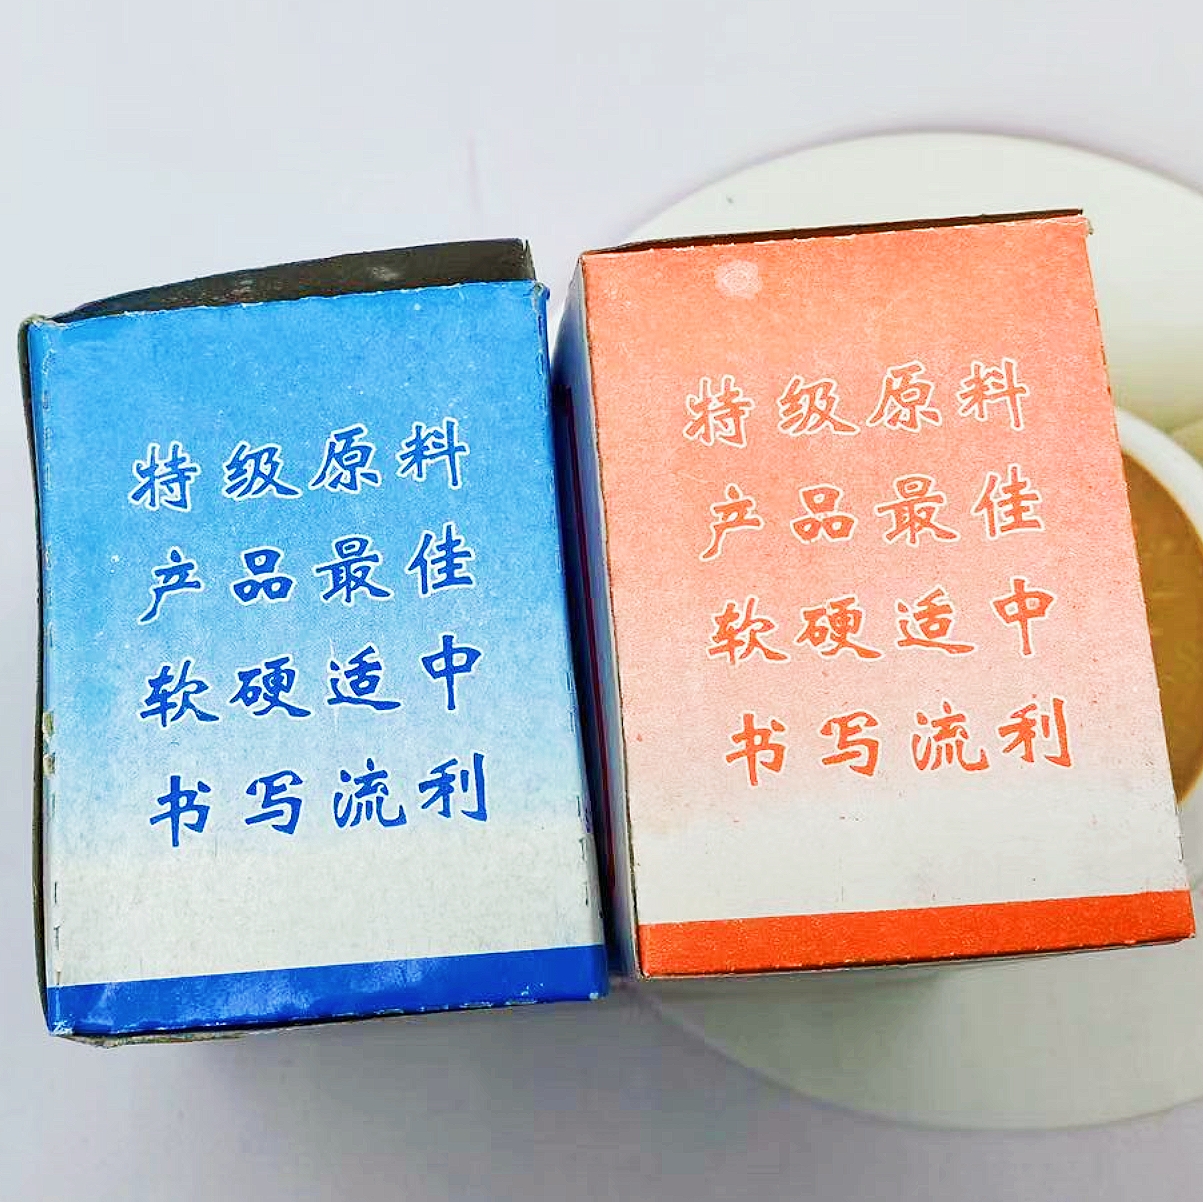 特级原料
产品最佳
软硬适中
书写流利
特级原料
产品最佳
软硬适中
书写流利